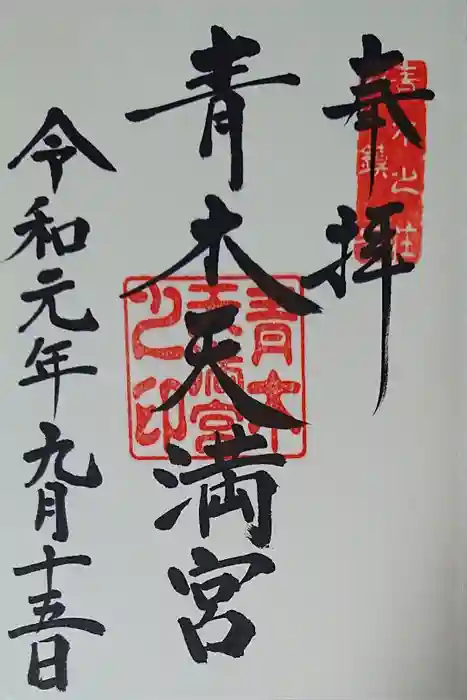 奉拝
青木天満宮
令和元年九月十五日
青木
天満宮
之印